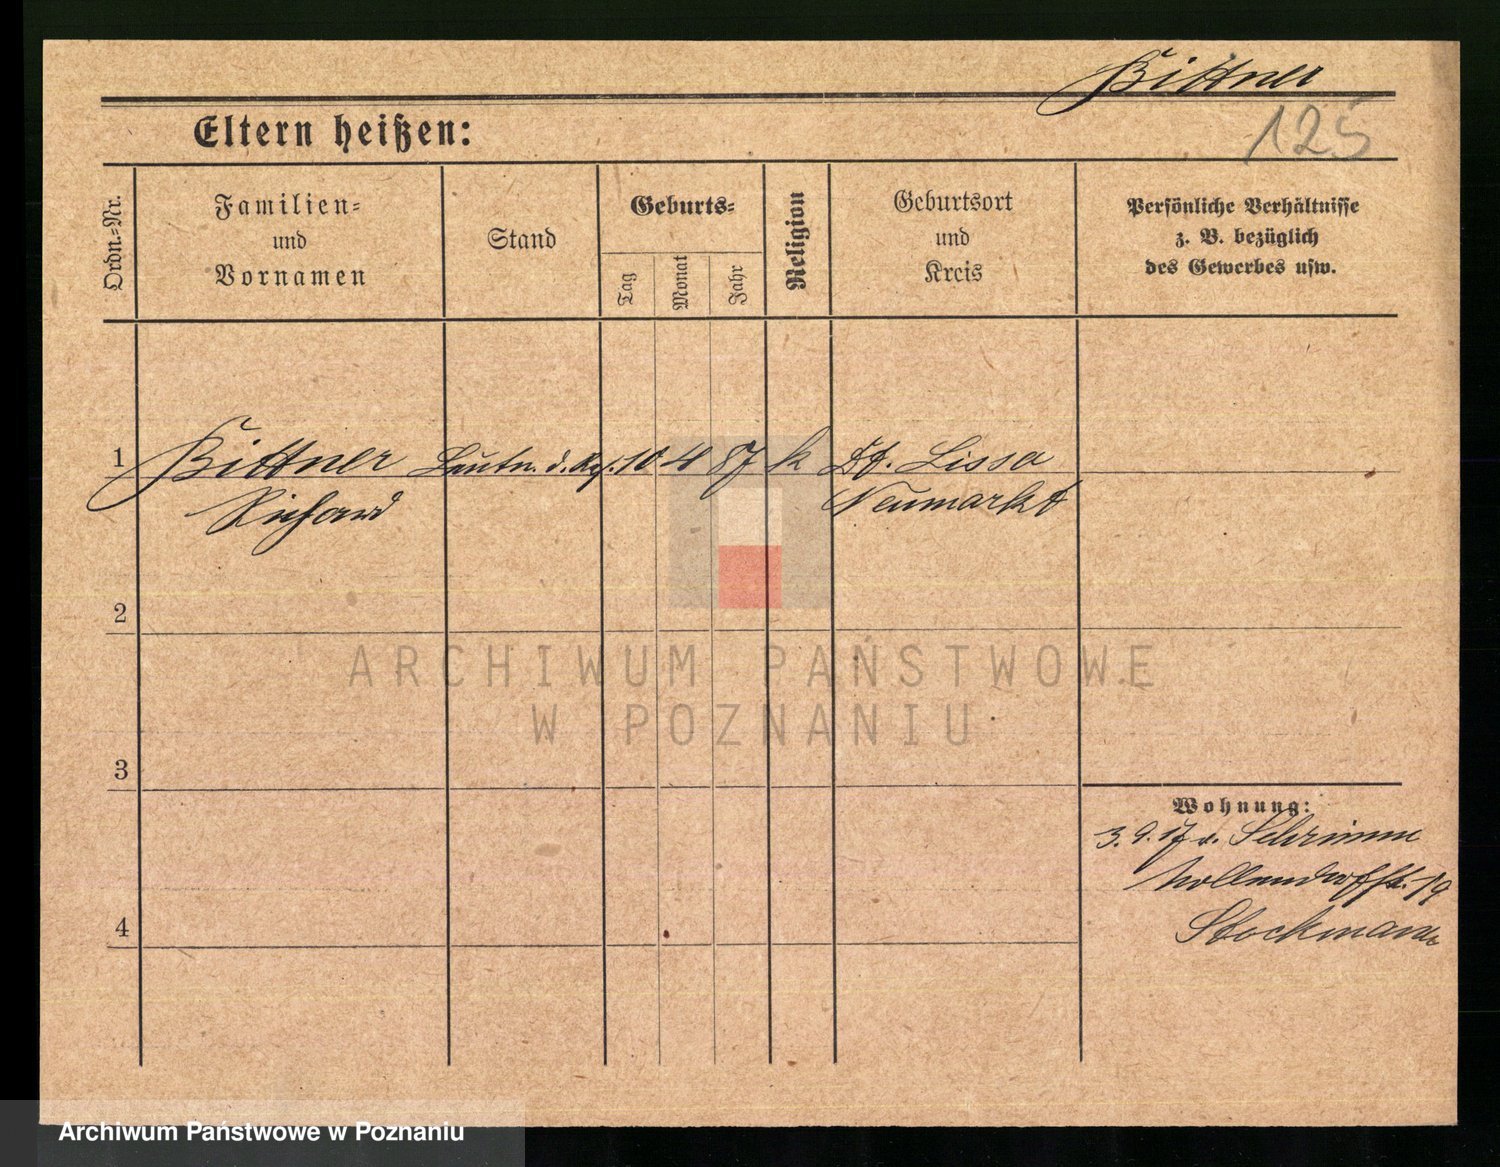 Bittner
125
Eltern heißen:
Ordn.=Nr.
Familien=
und
Vornamen
Stand
Geburts=
Tag
Monat
Jahr
Religion
Geburtsort
und
Kreis
Persönliche Verhältnisse
z. B. bezüglich
des Gewerbes usw.
1 Bittner Leutn. d. Res. 10 4 87 k Dt. Lissa
Richard Neumarkt
2
3
4
Wohnung:
3. 9. 17 v. Schrimm
19
Stockmann
ARCHIWUM PAŃSTWOWE
W POZNANIU
Archiwum Państwowe w Poznaniu